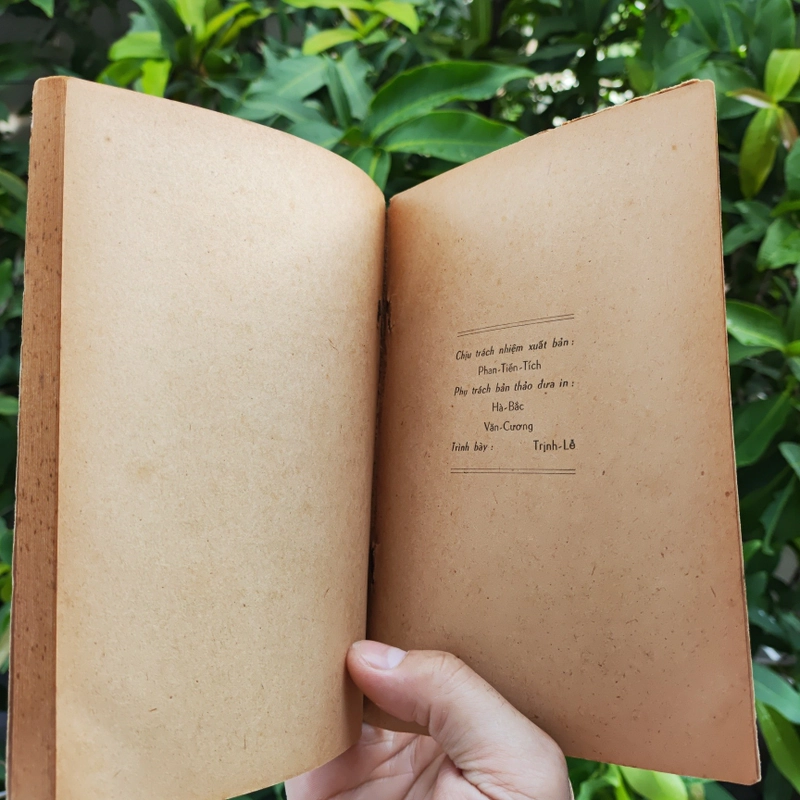 Chịu trách nhiệm xuất bản :
Phan-Tiến-Tích
Phụ trách bản thảo đưa in :
Hà-Bắc
Văn-Cương
Trình bày : Trịnh-Lễ